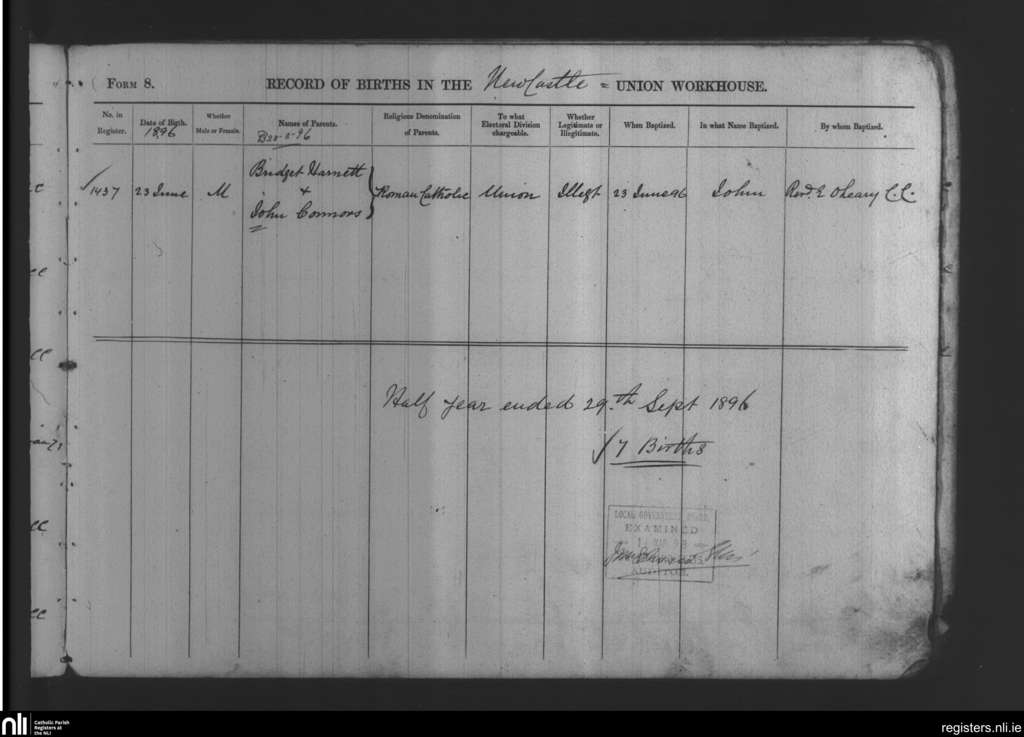 Form 8.
RECORD OF BIRTHS IN THE NewCastle = UNION WORKHOUSE.
No. in Register.
Date of Birth.
1896
Whether Male or Female.
Names of Parents.
Religious Denomination of Parents.
To what Electoral Division chargeable.
Whether Legitimate or Illegitimate.
When Baptized.
In what Name Baptized.
By whom Baptized.
Bridget Harnett
1437 23 June M + Roman Catholic Union Illegt 23 June 96 John Revd. E OLeary C.C.
John Connors
Half year ended 29.th Sept 1896
7 Births
LOCAL GOVERNMENT BOARD
EXAMINED
AUDITOR.
cc
cc
cc
cc
nli
Catholic Parish
Registers at
the NLI
registers.nli.ie